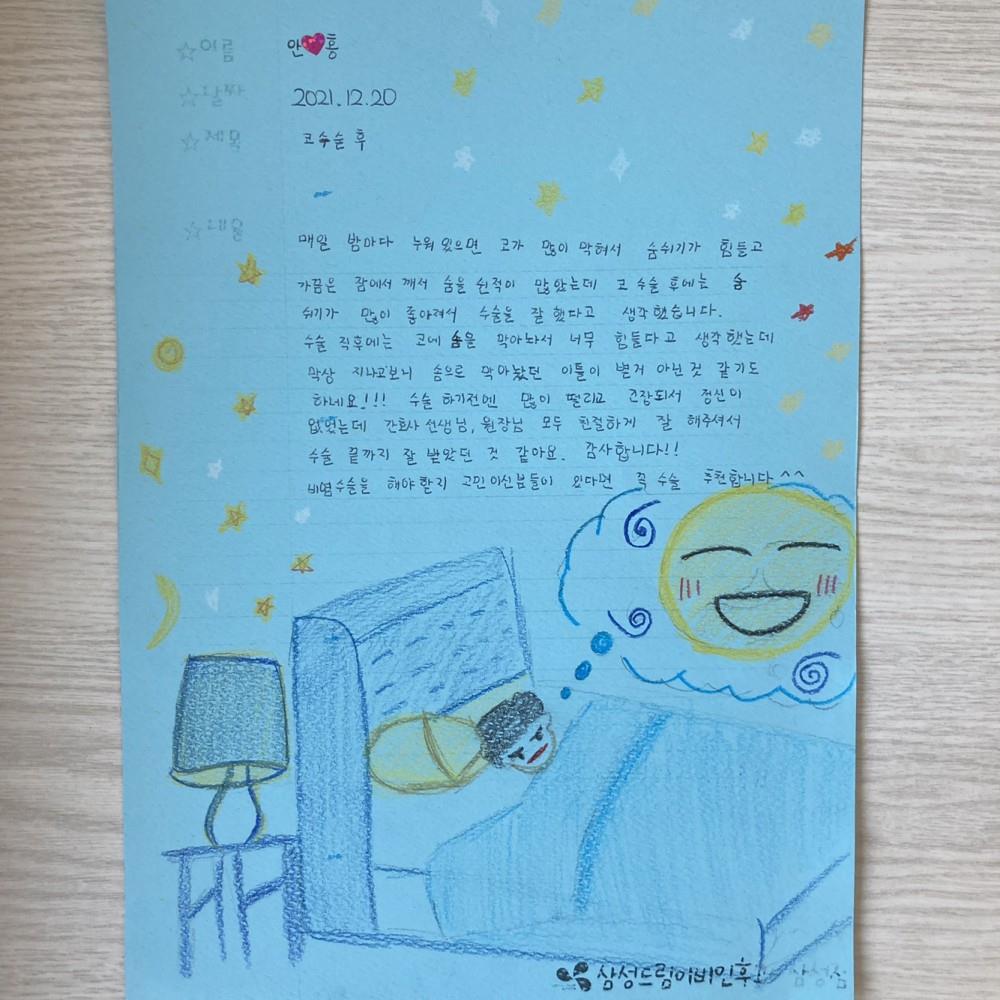 안 홍
2021.12.20
코수술 후
매일 밤마다 누워있으면 코가 많이 막혀서 숨쉬기가 힘들고
가끔은 잠에서 깨서 숨을 쉰적이 많았는데 코 수술 후에는 숨
쉬기가 많이 좋아져서 수술을 잘 했다고 생각했습니다.
수술 직후에는 코에 솜을 막아놔서 너무 힘들다고 생각했는데
막상 지나고보니 솜으로 막아놨던 이틀이 별거 아닌것 같기도
하네요!!! 수술 하기전엔 많이 떨리고 긴장되서 정신이
없었는데 간호사 선생님, 원장님 모두 친절하게 잘 해주셔서
수술 끝까지 잘 받았던 것 같아요. 감사합니다!!
비염수술을 해야할지 고민이신분들이 있다면 꼭 수술 추천합니다^^
☆이름
☆날짜
☆제목
☆내용
삼성드림이비인후
삼성드